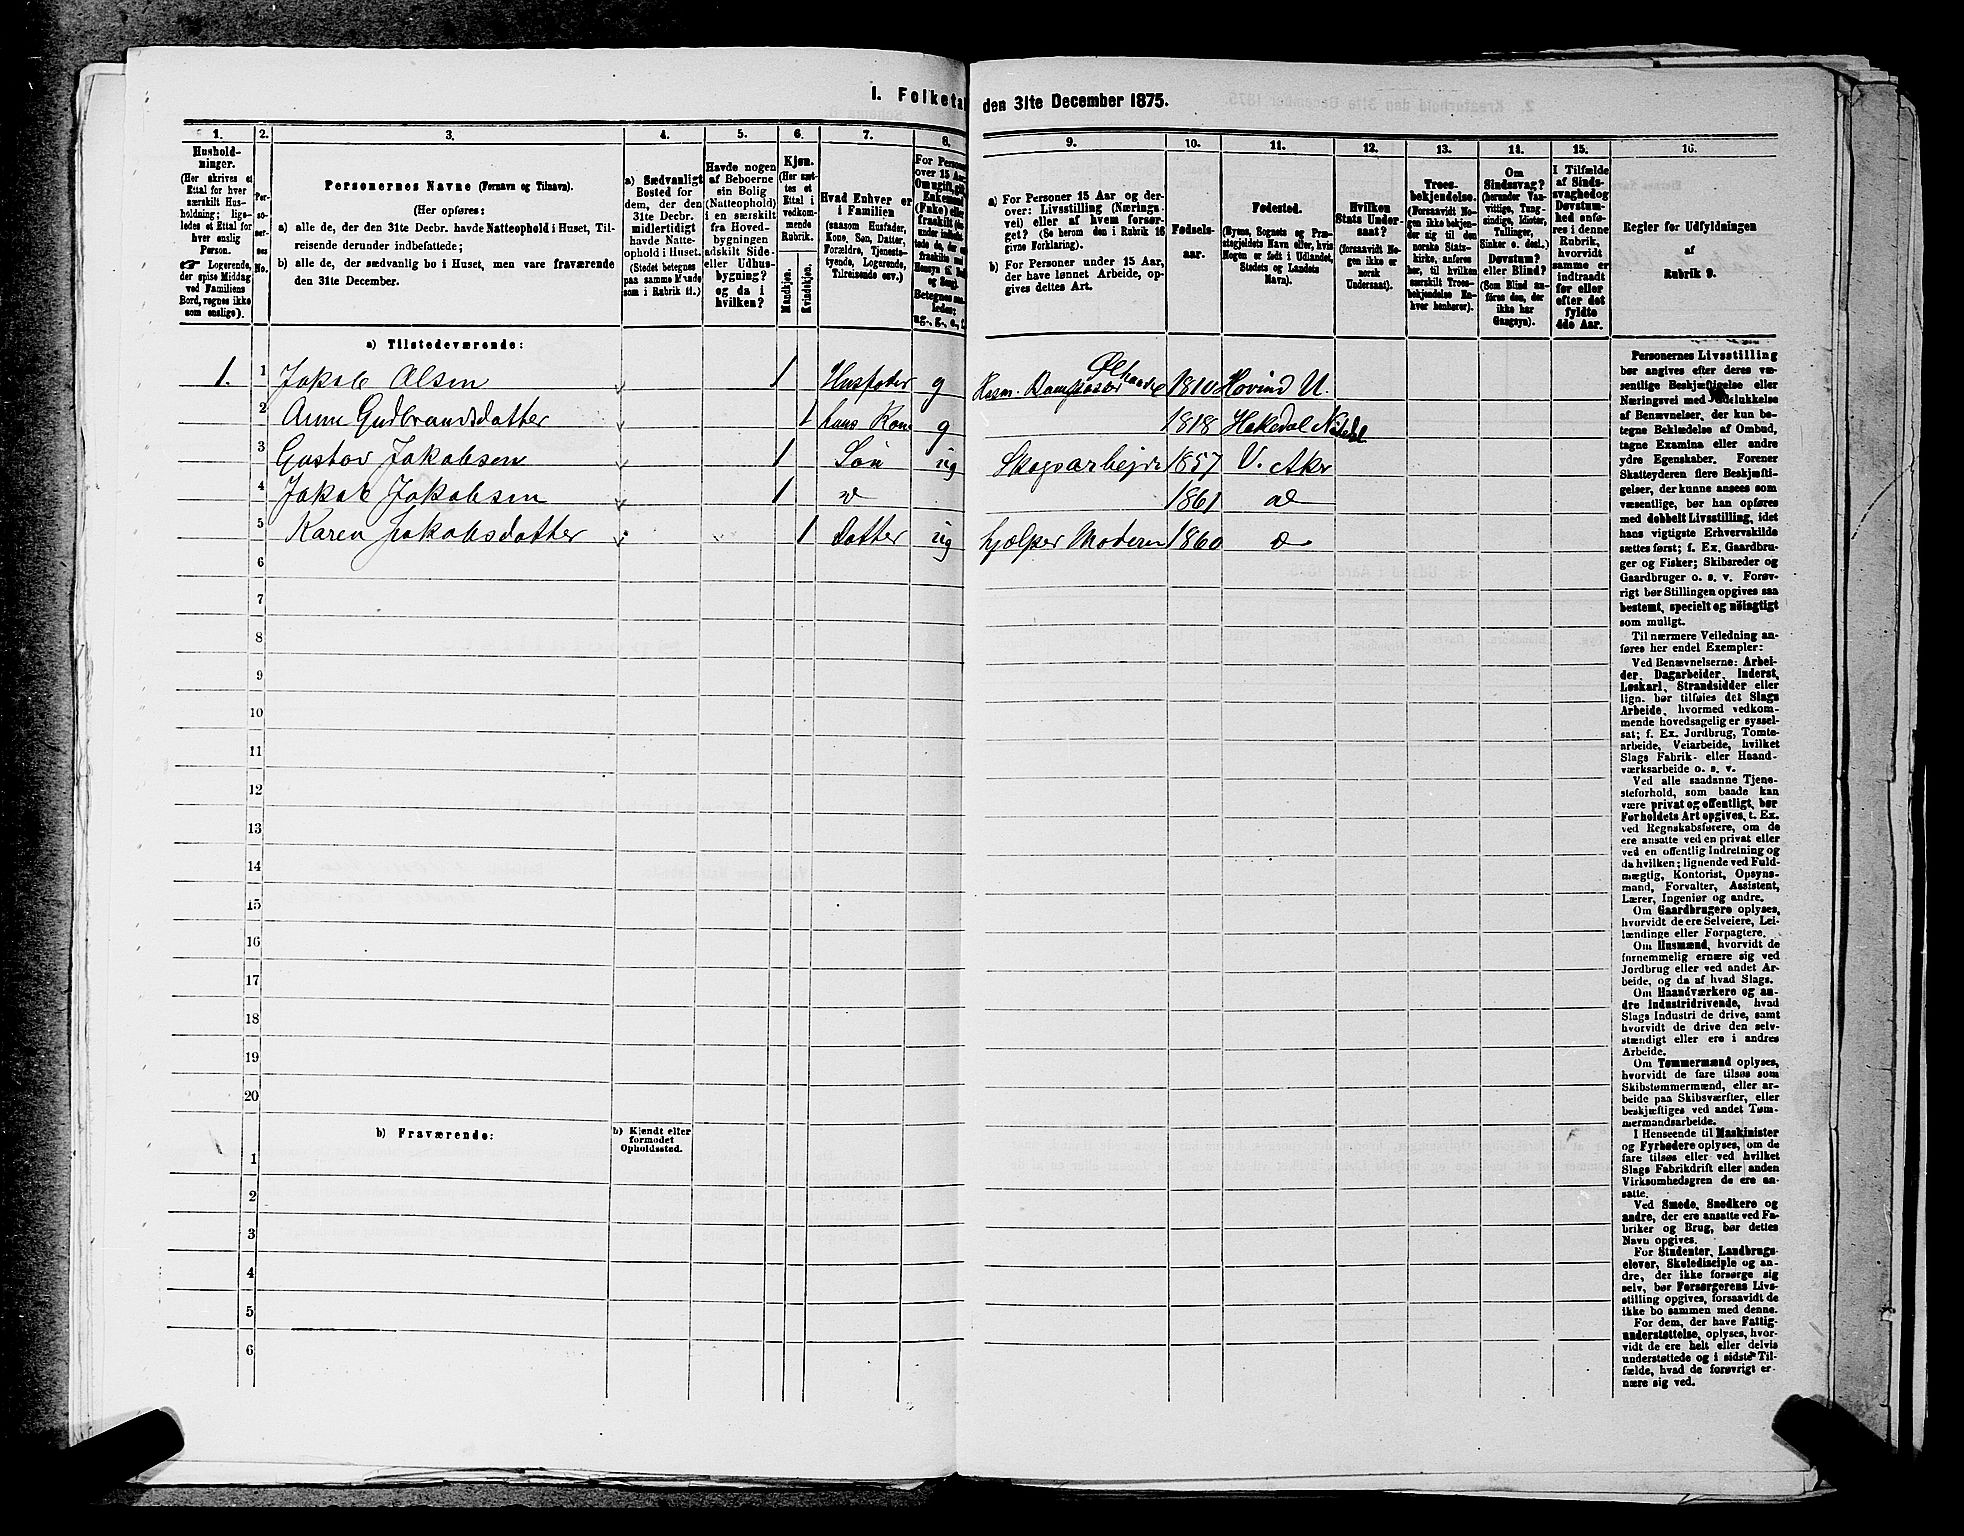 I. Folketal
den 31te December 1875.
1.
2.
3.
4.
5.
6.
7.
8.
9.
10.
11.
12.
13.
14.
15.
16.
Hushold-
ninger.
(Her skrives et
Ettal for hver
særskilt Hus-
holdning; lige-
ledes et Ettal for
hver enslig
Person.
☞ Logerende,
der spise Middag
ved Familiens
Bord, regnes ikke
som enslige).
Per-
so-
ner-
nes
No.
Personernes Navne (Fornavn og Tilnavn).
(Her opføres:
a) alle de, der den 31te Decbr. havde Natteophold i Huset, Til-
reisende derunder indbefattede;
b) alle de, der sædvanlig bo i Huset, men vare fraværende
den 31te December.
a) Sædvanligt
Bosted for
dem, der den
31te Decbr.
midlertidigt
havde Natte-
ophold i Huset.
(Stedet betegnes
paa samme Maade
som i Rubrik 11.)
Havde nogen
af Beboerne
sin Bolig
(Natteophold)
i en særskilt
fra Hoved-
bygningen
adskilt Side-
eller Udhus-
bygning?
og da i
hvilken?
Kjøn.
(Her sæt-
tes et
Ettal i
vedkom-
mende
Rubrik.
Mandkjøn.
Kvindekjøn.
Hvad Enhver er
i Familien
(saasom Husfader,
Kone, Søn, Datter,
Forældre, Tjeneste-
tyende, Logerende,
Tilreisende osv.)
For Personer
over 15 Aar:
Om ugift, gift,
Enkemand
(Enke) eller
fraskilt
a) For Personer 15 Aar og der-
over: Livsstilling (Nærings-
vei) eller af hvem forsør-
get? (Se herom den i Rubrik 16
givne Forklaring).
b) For Personer under 15 Aar,
der have lønnet Arbeide, op-
gives dettes Art.
Fødsels-
aar.
Fødested.
(Byens, Sognets og Præ-
stegjeldets Navn eller, hvis
Nogen er født i Udlandet,
Stedets og Landets
Navn).
Hvilken
Stats Under-
saat?
(forsaavidt No-
gen ikke er
norsk
Undersaat).
Troes-
bekjendelse.
(Forsaavidt No-
gen ikke beken-
der sig til den
norske Stats-
kirke, anføres
her, til hvilken
særskilt Troes-
bekjendelse En-
hver henhører).
Om
Sindssvag?
(herunder Van-
vittige, Tung-
sindige, Idioter,
Tullinger,
Sinker o. desl.)
Døvstum?
eller Blind?
(Som Blind an-
føres den, der
ikke har
Gangsyn).
I Tilfælde
af Sinds-
svaghed og
Døvstum-
hed anfø-
res i denne
Rubrik,
hvorvidt
samme er
indtraadt
før eller
efter det
fyldte
4de Aar.
Regler for Udfyldningen
af
Rubrik 9.
a) Tilstedeværende:
1. 1 Jakob Olsen 1 Husfader g 1810 Hovind U.
2 Anne Gudbrandsdatter 1 hans Kone g 1818 Hakedal Nitedal
3 Gustov Jakobsen 1 Søn ug Skogsarbejde 1857 V. Aker
4 Jakob Jakobsen 1 1861
5 Karen Jakobsdatter 1 datter ug hjælper Moderen 1860
6
7
8
9
10
11
12
13
14
15
16
17
18
19
20
b) Fraværende:
b) Kjendt eller
formodet
Opholdssted.
1
2
3
4
5
6
Personernes Livsstilling
bør angives efter deres væ-
sentlige Beskjæftigelse eller
Næringsvei med Udelukkelse
af Benævnelser, der kun be-
tegne Beklædelse af Ombud,
tagne Examina eller andre
ydre Egenskaber. Forener
Skatteyderen flere Beskjæfti-
gelser, der kunne ansees som
væsentlige, bør han opføres
med dobbelt Livsstilling, idet
hans vigtigste Erhvervskilde
sættes først; f. Ex. Gaardbru-
ger og Fisker; Skibsreder og
Gaardbruger o. s. v. Forøv-
rigt bør Stillingen opgives saa
bestemt, specielt og nøiagtigt
som muligt.
Til nærmere Veiledning an-
føres her endel Exempler:
Ved Benævnelserne: Arbei-
der, Dagarbeider, Inderst,
Løskarl, Strandsidder eller
lign. bør tilføies det Slags
Arbeide, hvormed vedkom-
mende hovedsagelig er syssel-
sat; f. Ex. Jordbrug, Tomte-
arbeide, Veiarbeide, hvilket
Slags Fabrik- eller Haand-
værksarbeide o. s. v.
Ved alle saadanne Tjene-
steforhold, som baade kan
være privat og offentligt, bør
Forholdets Art opgives, t. Ex.
ved Regnskabsførere, om de
ere ansatte ved en privat eller
ved en offentlig Indretning og
da hvilken; lignende ved Fuld-
mægtig, Kontorist, Opsyns-
mand, Forvalter, Assistent,
Lærer, Ingeniør og andre.
Om Gaardbrugere oplyses,
hvorvidt de ere Selveiere, Lei-
lændinge eller Forpagtere.
Om Husmænd, hvorvidt de
fornemmelig ernære sig ved
Jordbrug eller ved andet Ar-
beide, og da af hvad Slags.
Om Haandværkere og an-
dre Industridrivende, hvad
Slags Industri de drive, samt
hvorvidt de drive den selv-
stændigt eller ere i andres
Arbeide.
Om Tømmermænd oplyses,
hvorvidt de fare tilsøs som
Skibstømmermænd, eller ar-
beide paa Skibsværfter, eller
beskjæftiges ved andet Tøm-
mermandsarbeide.
I Henseende til Maskinister
og Fyrbødere oplyses, om de
fare tilsøs eller ved hvilket
Slags Fabrikdrift eller anden
Virksomhedsgren de ere an-
satte.
Ved Smede, Snedkere og
andre, der ere ansatte ved Fa-
briker og Brug, bør dettes
Navn opgives.
For Studenter, Landbrugs-
elever, Skoledisciple og an-
dre, der ikke forsørge sig
selv, bør Forsørgerens Livs-
stilling opgives, forsaavidt de
ikke bo sammen med denne.
For dem, der have Fattig-
understøttelse, oplyses, hvor-
vidt de ere helt eller delvis
understøttede og i sidste Til-
fælde, hvad de forøvrigt er-
nære sig ved.